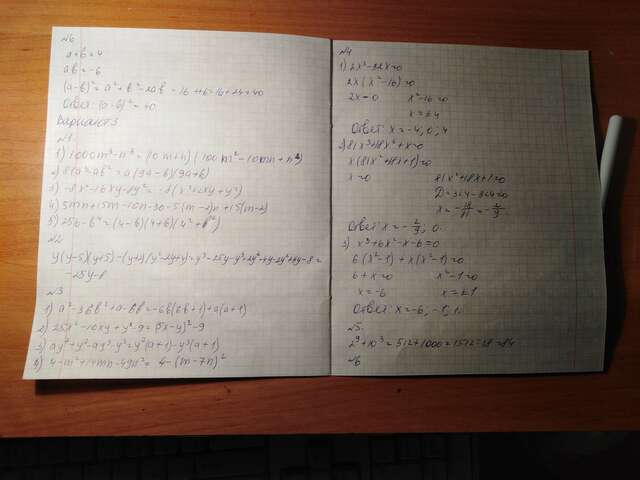 №6
a+b=4
ab=-6
(a-b)²=a²+b²-2ab=16+24=40
Ответ: (a-b)²=40
Вариант 3
№1
1) 1000m³-n³=(10m+n)(100m²-10mn+n²)
2) 81a³-ab²=a(9a-b)(9a+b)
3) -8x²-16xy-8y²=-8(x²+2xy+y²)
4) 5mn+15m-10n-30=5(m-2)n+15(m-2)
5) 256-b⁴=(4-b)(4+b)(4²+b²)
№2
-25y-8
№3
1) a²-36b²+a-6b=-6b(6b+1)+a(a+1)
2) 25x²-10xy+y²-9=(5x-y)²-9
3) ay²+y²-ay³-y³=y²(a+1)-y³(a+1)
4) 4-m²+14mn-49n²=4-(m-7n)²
№4
1) 2x³-32x=0
2x(x²-16)=0
2x=0 x²-16=0
x=±4
Ответ: x=-4, 0, 4
2) 81x³+18x²+x=0
x(81x²+18x+1)=0
x=0 81x²+18x+1=0
D=324-324=0
Ответ: x=-2/9, 0.
3) x³+6x²-x-6=0
6(x²-1)+x(x²-1)=0
6+x=0 x²-1=0
x=-6 x=±1
Ответ: x=-6, -1, 1.
№5
2⁹+10³=512+1000=1512:18=84
№6